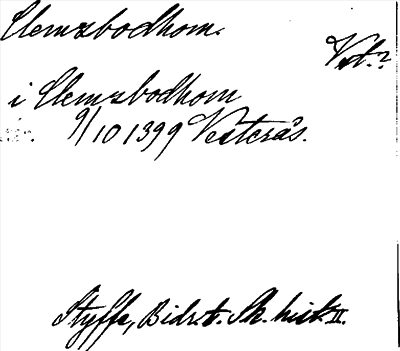 Clemzbodhom.
Vstl.?
i Clemzbodhom
9/10 1399 Vesterås.
Styffe, Bidr. t. Sk. hist. II.